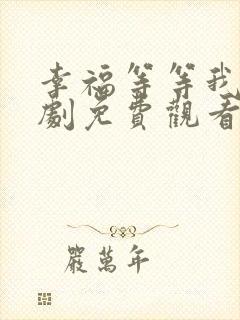 幸福等等我
劇免費觀看
嚴萬年